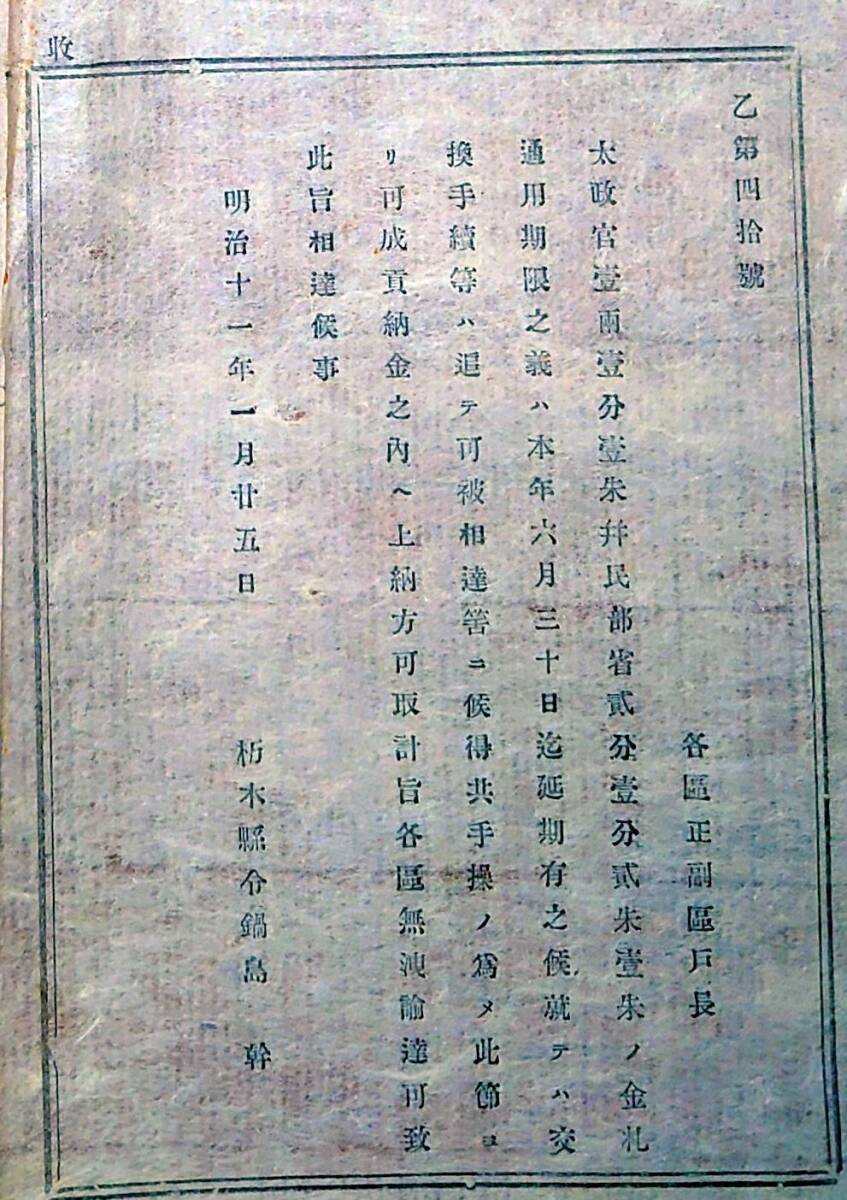 収
乙第四拾號
各區正副區戸長
太政官壹兩壹分壹朱幷民部省貳分壹分貳朱壹朱ノ金札
通用期限之義ハ本年六月三十日迄延期有之候就テハ交
換手續等ハ追テ可被相達筈ニ候得共手操ノ爲メ此節ヨ
リ可成貢納金之內ヘ上納方可取計旨各區無洩諭達可致
此旨相達候事
明治十一年一月廿五日
栃木縣令鍋島幹